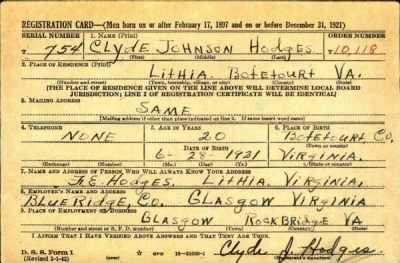 REGISTRATION CARD—(Men born on or after February 17, 1897 and on or before December 31, 1921)
SERIAL NUMBER 1. NAME (Print) ORDER NUMBER
T 754 Clyde Johnson Hodges T10,118
(First) (Middle) (Last)
2. PLACE OF RESIDENCE (Print)
Lithia. Botetourt VA.
(Number and street) (Town, township, village, or city) (County) (State)
[THE PLACE OF RESIDENCE GIVEN ON THE LINE ABOVE WILL DETERMINE LOCAL BOARD
JURISDICTION; LINE 2 OF REGISTRATION CERTIFICATE WILL BE IDENTICAL]
3. MAILING ADDRESS
SAME
[Mailing address if other than place indicated on line 2. If same insert word same]
4. TELEPHONE 5. AGE IN YEARS 6. PLACE OF BIRTH
NONE 20 Botetourt Co.
DATE OF BIRTH (Town or county)
6- 28- 1921 Virginia.
(Exchange) (Number) (Mo.) (Day) (Yr.) (State or country)
7. NAME AND ADDRESS OF PERSON WHO WILL ALWAYS KNOW YOUR ADDRESS
Hodges, Lithia, Virginia.
8. EMPLOYER'S NAME AND ADDRESS
Blue Ridge, Co. Glasgow Virginia
9. PLACE OF EMPLOYMENT OR BUSINESS
Glasgow RockBridge VA
(Number and street or R. F. D. number) (Town) (County) (State)
I AFFIRM THAT I HAVE VERIFIED ABOVE ANSWERS AND THAT THEY ARE TRUE.
D. S. S. Form 1 GPO Clyde J. Hodges
(Revised 1-1-42) (over)